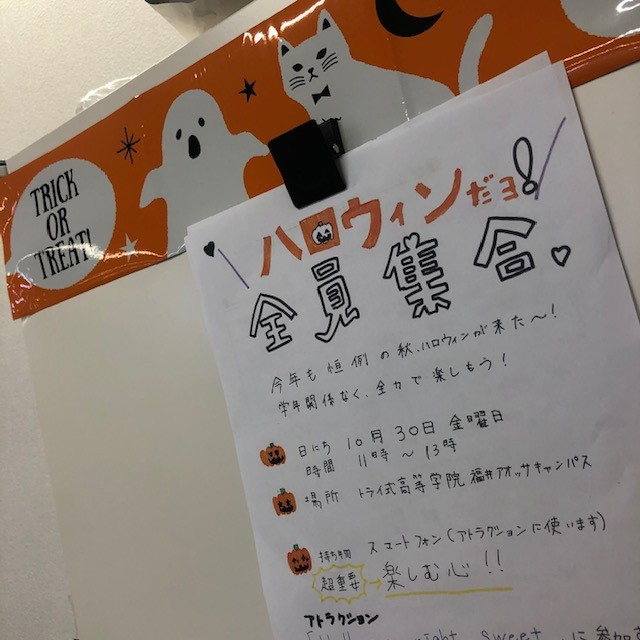 TRICK
OR
TREAT!
ハロウィンだョ!
全員集合
今年も恒例の秋、ハロウィンが来た〜!
学年関係なく、全力で楽しもう!
日にち 10月30日 金曜日
時間 11時〜13時
場所 トライ式高等学院 福井アオッサキャンパス
持ち物 スマートフォン(アトラクションに使います)
超重要 → 楽しむ心!!
アトラクション